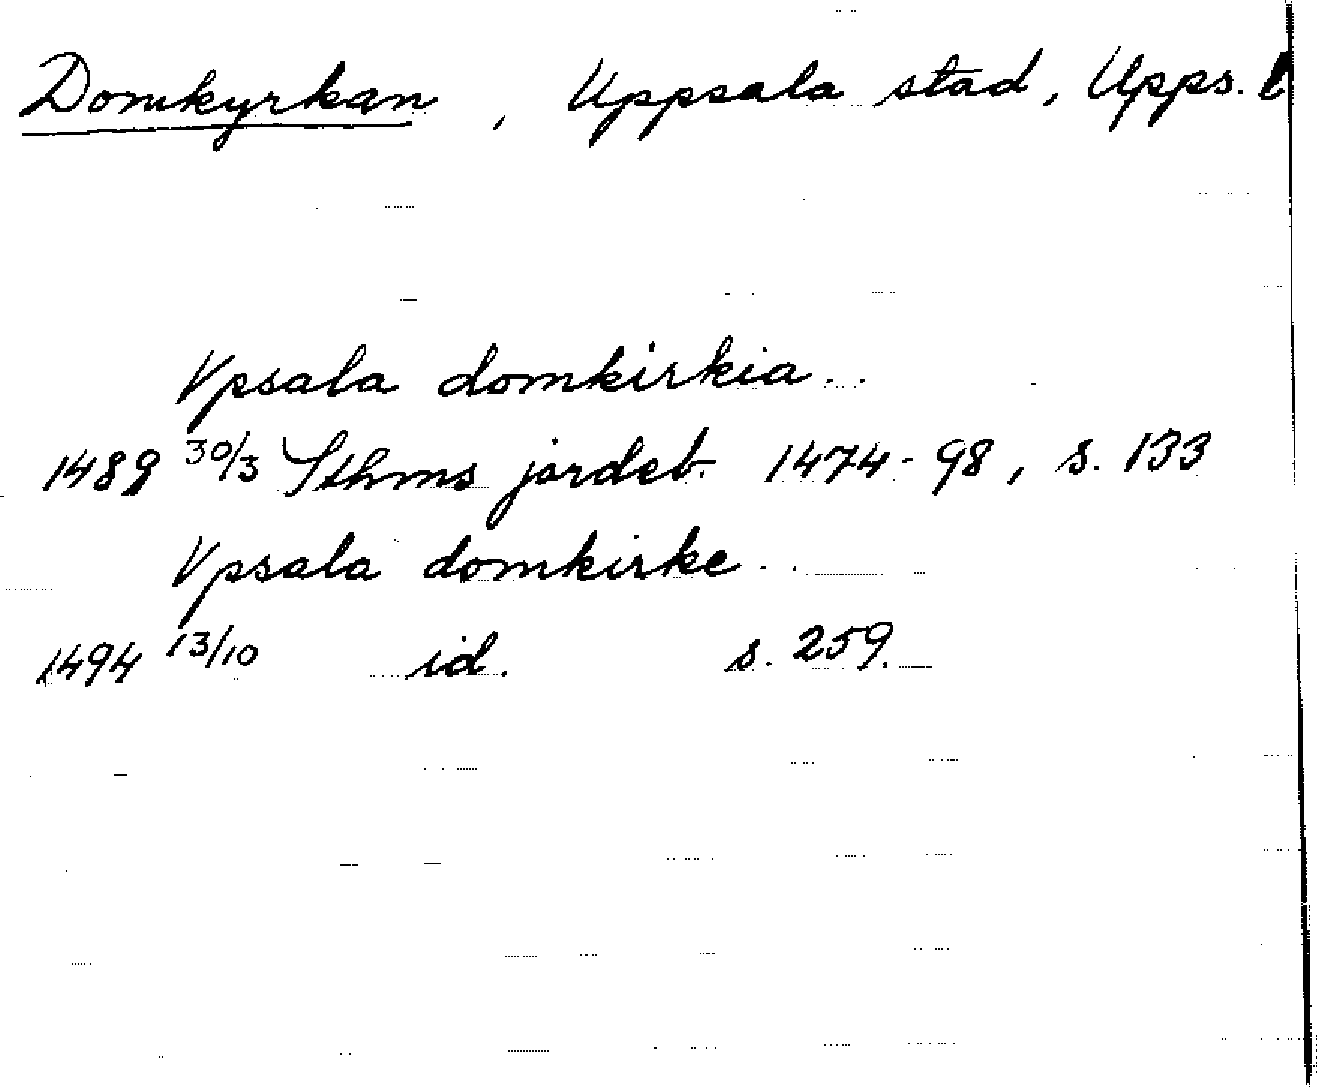 Domkyrkan, Uppsala stad, Upps. l
Vpsala domkirkia
1489 30/3 Sthms jordeb. 1474-98, s. 133
Vpsala domkirke
1494 13/10 id. s. 259.